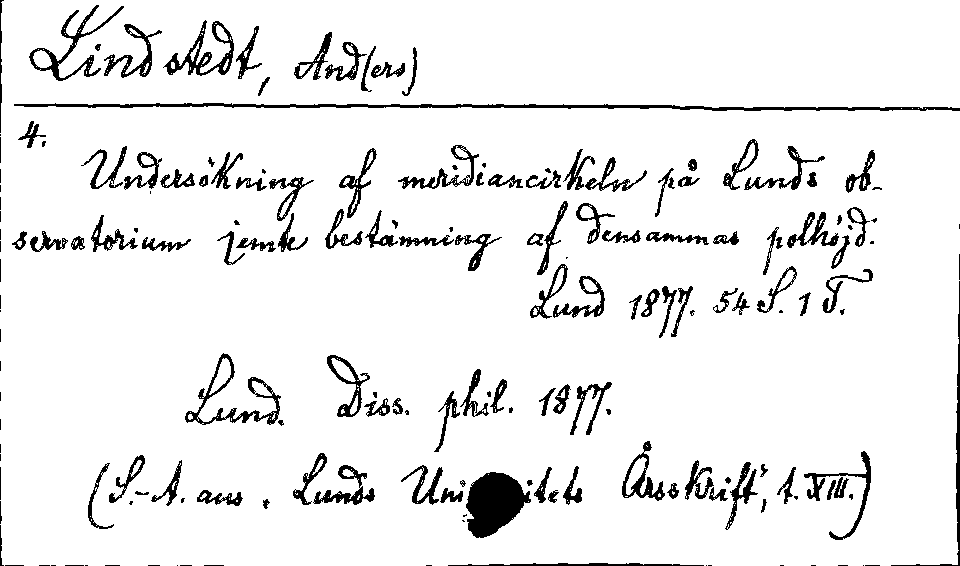 Lindstedt, And(ers)
4.
Undersökning af meridiancirkeln på Lunds ob-
servatorium jemte bestämning af densammas polhöjd.
Lund 1877. 54 S. 1 T.
Lund. Diss. phil. 1877.
(S.-A. aus „Lunds Uni itets Årsskrift“, t. XIII.)